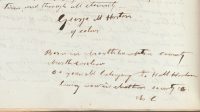 Time and through all eternity
George M Horton
of color
Born in Northhampton county
North Carolina
years belonging to Hall Horton
living now in Chatham county
N C